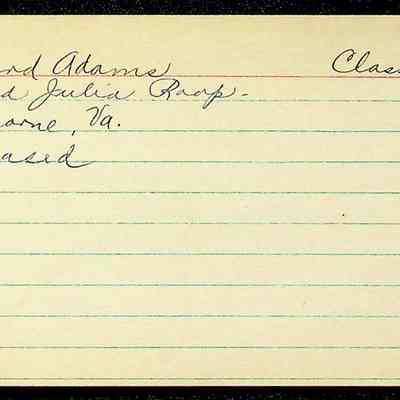 ord Adams Class
d Julia Roop.
orne, Va.
ased